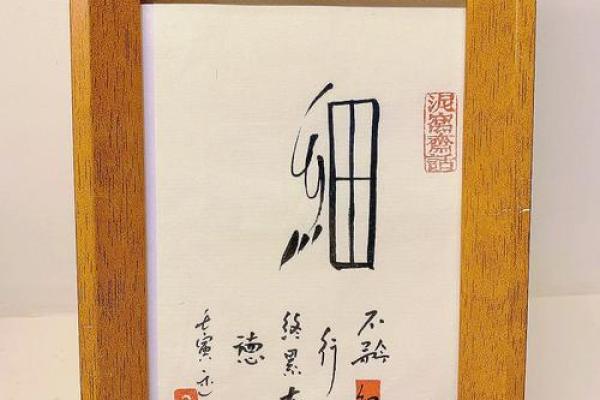 細
泥窩齋話
不矜細
行
終累大
德
壬寅